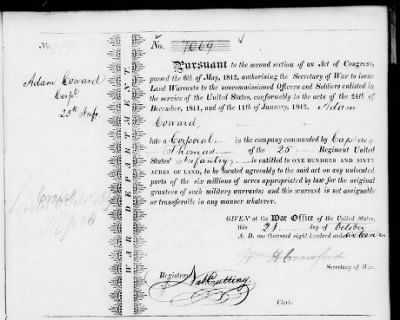 No. 7069
Adam Coward
Corpl
25th Inf
WAR DEPARTMENT
Pursuant to the second section of an Act of Congress,
passed the 6th of May, 1812, authorising the Secretary of War to issue
Land Warrants to the noncommissioned Officers and Soldiers enlisted in
the service of the United States, conformably to the acts of the 24th of
December, 1811, and of the 11th of January, 1812, Adam
Coward,
late a Corporal in the company commanded by Captain
Thomas of the 25 Regiment United
States' Infantry is entitled to ONE HUNDRED AND SIXTY
ACRES OF LAND, to be located agreeably to the said act on any unlocated
parts of the six millions of acres appropriated by law for the original
grantees of such military warrants; and this warrant is not assignable
or transferable in any manner whatever.
GIVEN at the War Office of the United States,
this 21 day of October
A. D. one thousand eight hundred and sixteen
Wm H Crawford
Secretary of War.
Registered
Nat Cutting
Clerk.